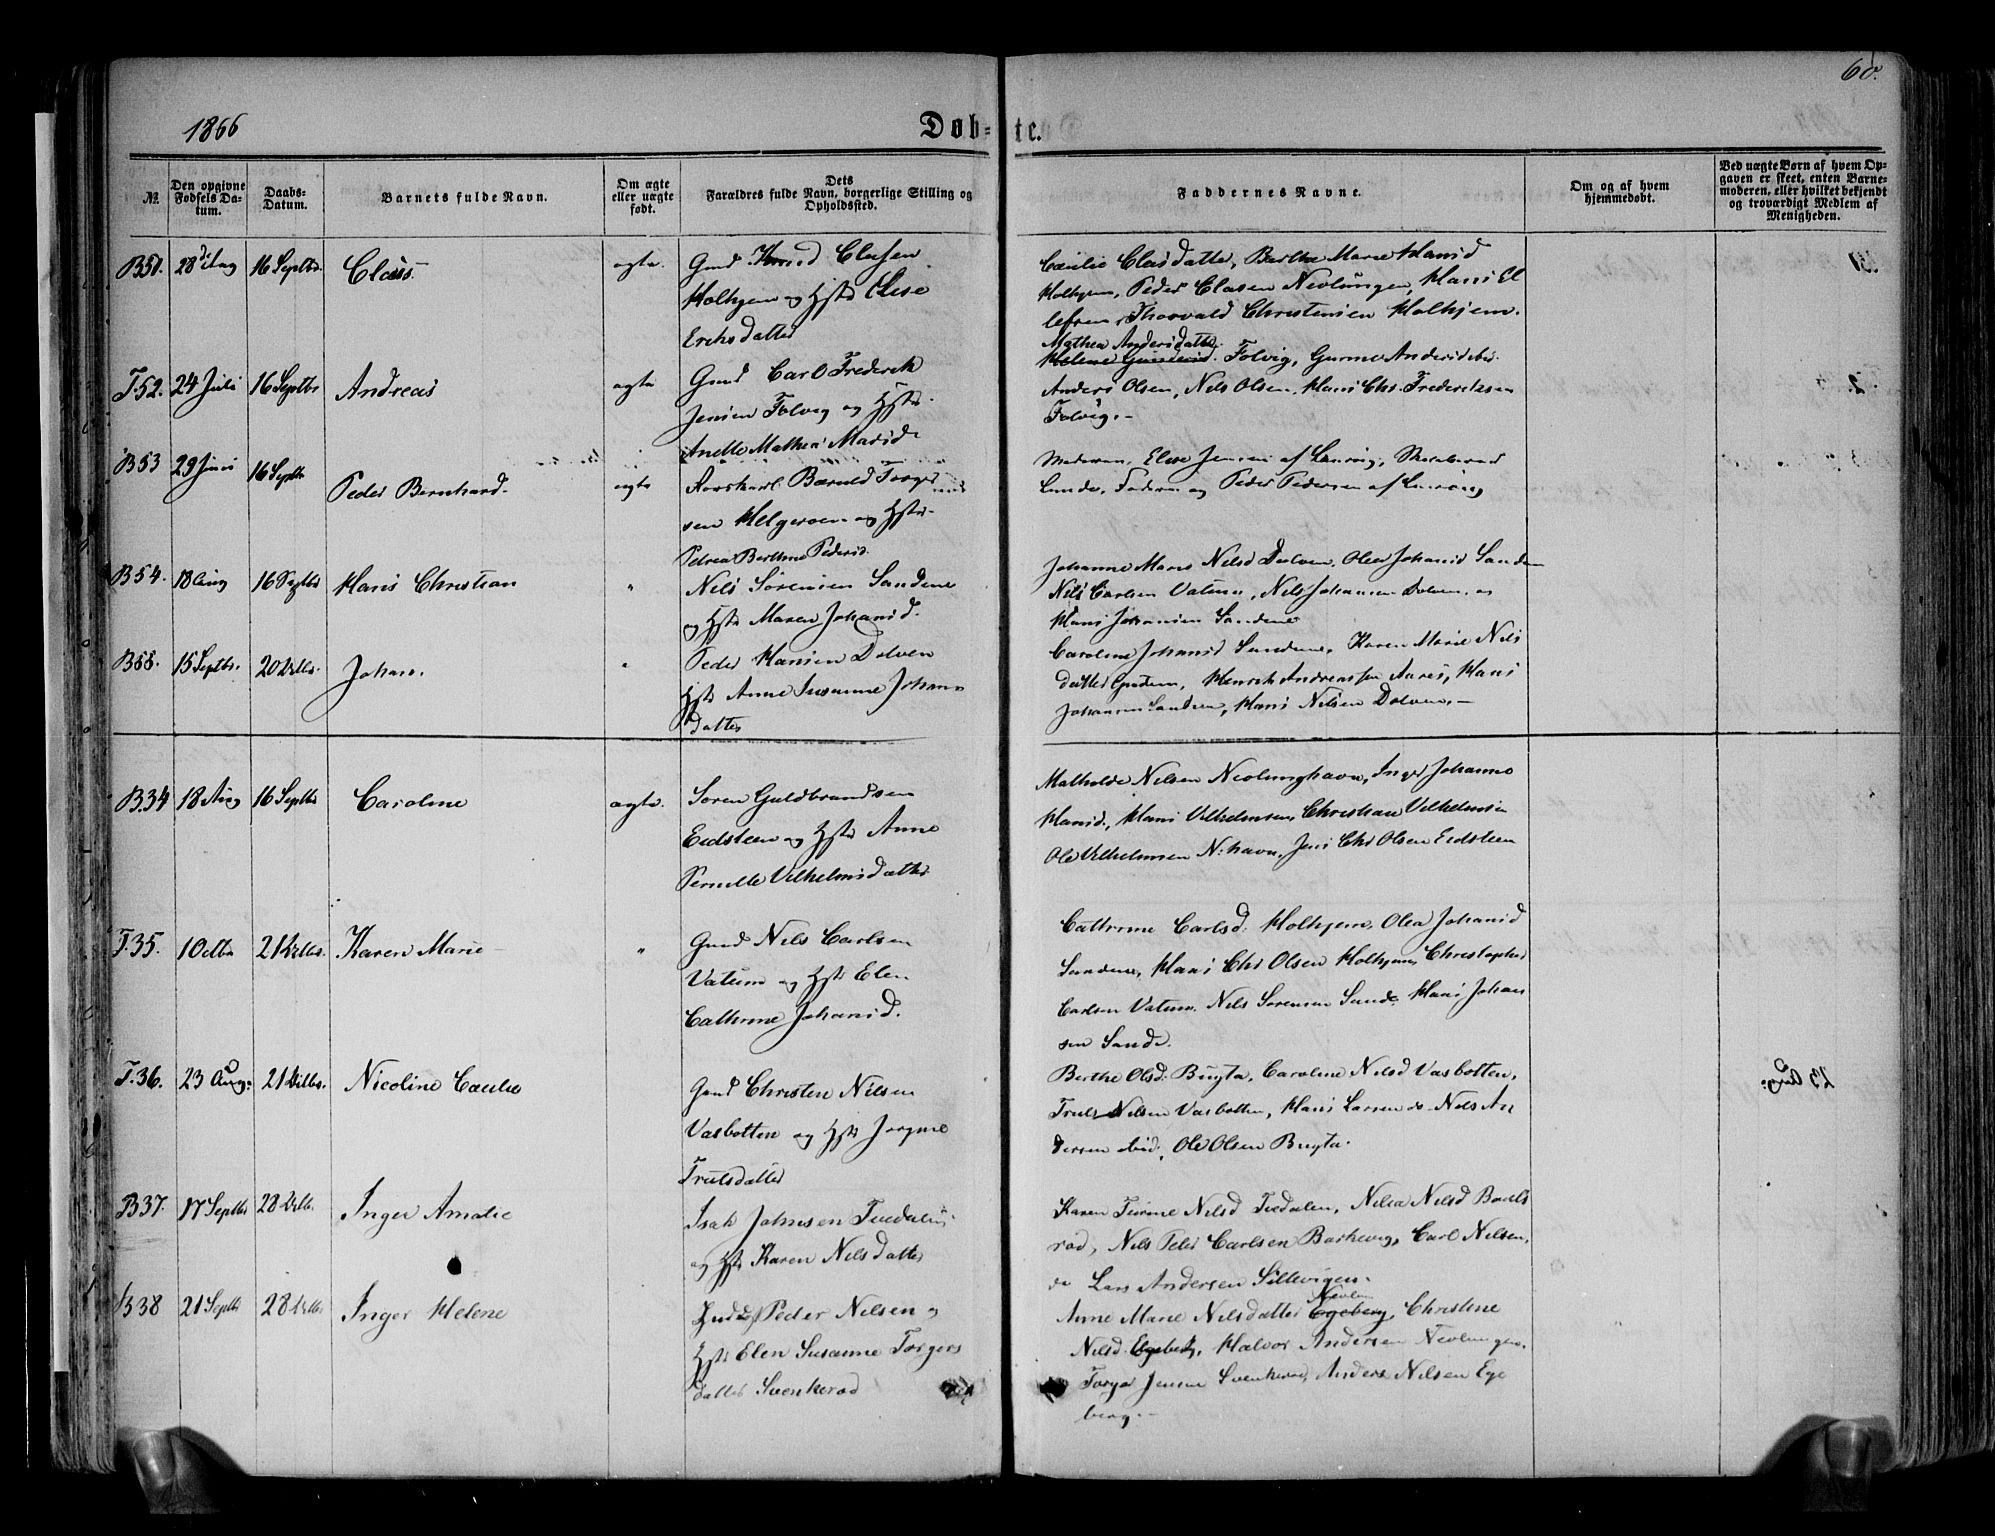 60.
1866
Døb-te.
№
Den opgivne Fødsels Datum.
Daabs-Datum.
Barnets fulde Navn.
Om ægte eller uægte født.
Dets Forældres fulde Navn, borgerlige Stilling og Opholdssted.
Faddernes Navne.
Om og af hvem hjemmedøbt.
Ved uægte Børn af hvem Opgaven er skeet, enten Barnemoderen, eller hvilket bekjendt og troværdigt Medlem af Menigheden.
B51. 28 16 Septbr. Class ægte. Gmd Knud Clasen
Holhjem og Hstr Elise
Erichsdatter
Cæcilie Clasdatter, Berthe Marie Hansd
Holhjem, Peder Clasen Nevlungen, Hans El
lefsen, Thorvald Christensen Holhjem.
T.52. 24 Juli 16 Septbr Andreas ægte Gmd Carl Frederik
Jensen Folvig og Hstr.
Anette Mathea Marisd.
Mathea Andersdatter
Helene Folvig, Gurine Andersd ibd.
Anders Olsen, Nils Olsen, Hans Chr. Frederiksen
Folvig.-
B53 29 Juni 16 Septbr Peder Bernhard. ægte Bærnt Torger
sen Helgeroen og Hstr.
Petrea Berthine Pedersd.
Moderen, Elise Jensen af Laurvig,
Lunde, Faderen og Peder Pedersen af Laurvig
B54. 18 Aug 16 Septbr Hans Christian " Nils Sørensen Sandene
og Hstr Maren Johansd.
Johanne Marie Nilsd Dolven, Olea Johansd Sanden
Nils Carlsen Vatum, Nils Johansen Dolven, og
Hans Johansen Sandene
B55. 15 Septbr. 20 Octbr. Johan. " Peder Hansen Dolven
Hstr Anne Susanne Johans
datter
Caroline Johansd Sandene, Karen Marie Nils
datter, Henrik Andreassen Aarøs, Hans
Johansen Sanden, Hans Nilsen Dolven.-
B.34 18 Aug 16 Septbr Caroline ægte. Søren Guldbrandsen
Eidsteen og Hstr Anne
Pernille Vilhelmsdatter
Mathilde Nilsen Nevlunghavn, Inger Johanne
Hansd., Hans Vilhelmsen, Christian Vilhelmsen
Ole Vilhelmsen N:havn, Jens Chr Olsen Eidsteen
T.35. 1 Octbr 21 Octbr. Karen Marie " Gmd Nils Carlsen
Vatum og Hstr Elen
Cathrine Johansd.
Cathrine Carlsd. Holhjem, Olea Johansd
Sandene, Hans Chr Olsen Holhjem, Christopher
Carlsen Vatum. Nils Sørensen Sande. Hans Johan
sen Sande.
T.36. 23 Aug: 21 Octbr. Nicoline Cæcilie Gmd Christen Nilsen
Vasbotten og Hstr Jørgine
Trulsdatter
Berthe Olsd. Bugta, Caroline Nilsd Vasbotten,
Truls Nilsen Vasbotten, Hans Larsen do. Nils An
dersen ibid, Ole Olsen Bugta.
B37. 17 Septbr 28 Octbr. Inger Amalie Isak Johnsen Tvedalen
og Hstr Karen Nilsdatter
Karen Torine Nilsd Tvedalen, Nilia Nilsd Bauls
rød, Nils Peder Carlsen Barkevig, Carl Nilsen,
do Lars Andersen Sillevigen.
B38 21 Septbr 28 Octbr Inger Helene Peder Nilsen og
Hstr Elen Susanne Torgers
datter Svenkerød
Anne Marie Nilsdatter Nevlun Egeberg, Christine
Nilsd. Egeberg, Halvor Andersen Nevlungen,
Torger Jensen Svenkerød, Anders Nilsen Ege
berg.-